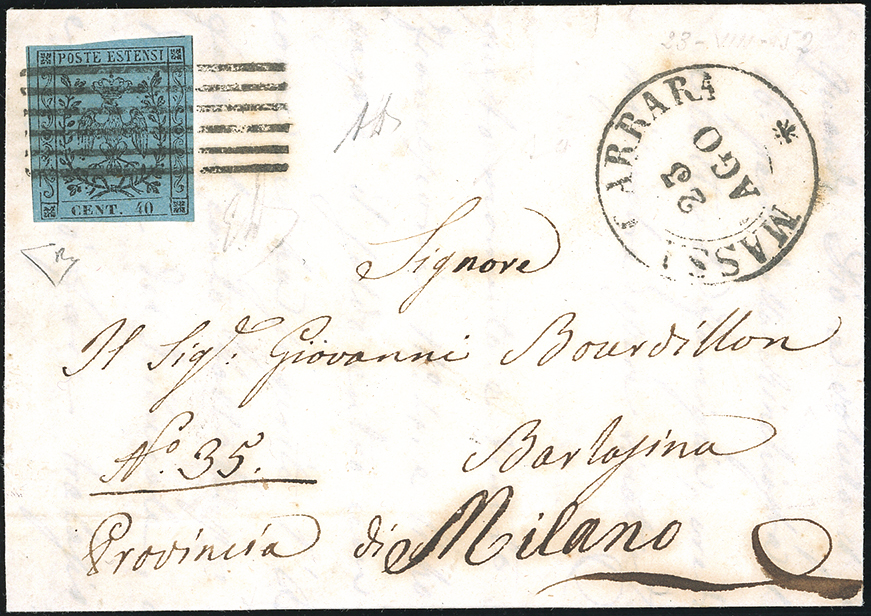 POSTE ESTENSI
CENT. 40
23-VIII-52
CARRARA
23
AGO
MASSA
Signore
Il Sig.r Giovanni Bourdillon
No. 35. Barlasina
Provincia di Milano